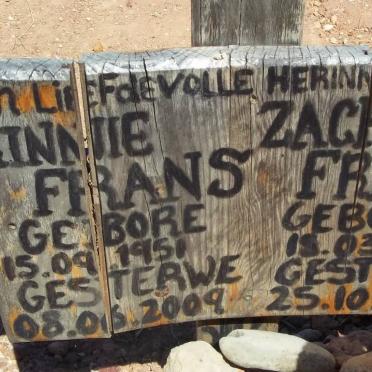 n LiefdeVOLLE HERINN
INNIE ZACH
FRANS FR
GEBORE GEBO
15.09.1951 18.03
GESTERWE GEST
08.06.2009 25.10